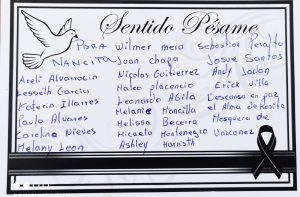 Sentido Pésame
Para Wilmer mera Sebastian Peralta
NANCITA Juan chapa Josue Santos
Areli Alvarracin Nicolas Gutierrez Andy
Lesseth Garcia Mateo placencio Erick Villa
Katerin Illares Leonardo Avila Descansa en paz
Paula Alvares Melanie Mancilla el Alma de Rosita
Carolina Nieves Melissa Becerra Mosquera de
Melany Leon Micaela Montenegro Vazconez
Ashley